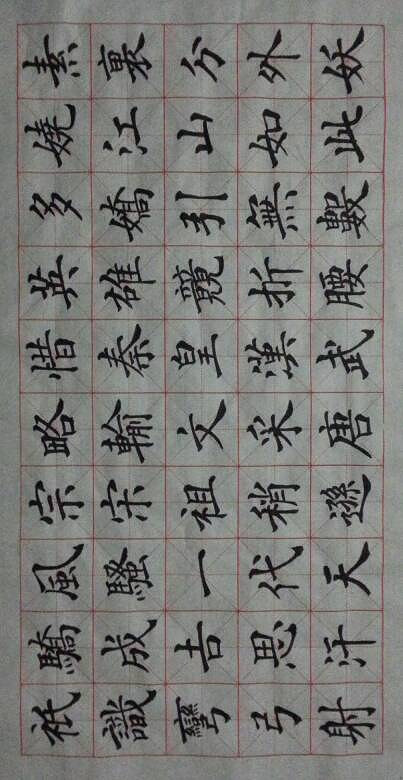 素裹分外妖
嬈江山如此
多嬌引無數
英雄競折腰
惜秦皇漢武
略輸文采唐
宗宋祖稍遜
風騷一代天
驕成吉思汗
祇識彎弓射